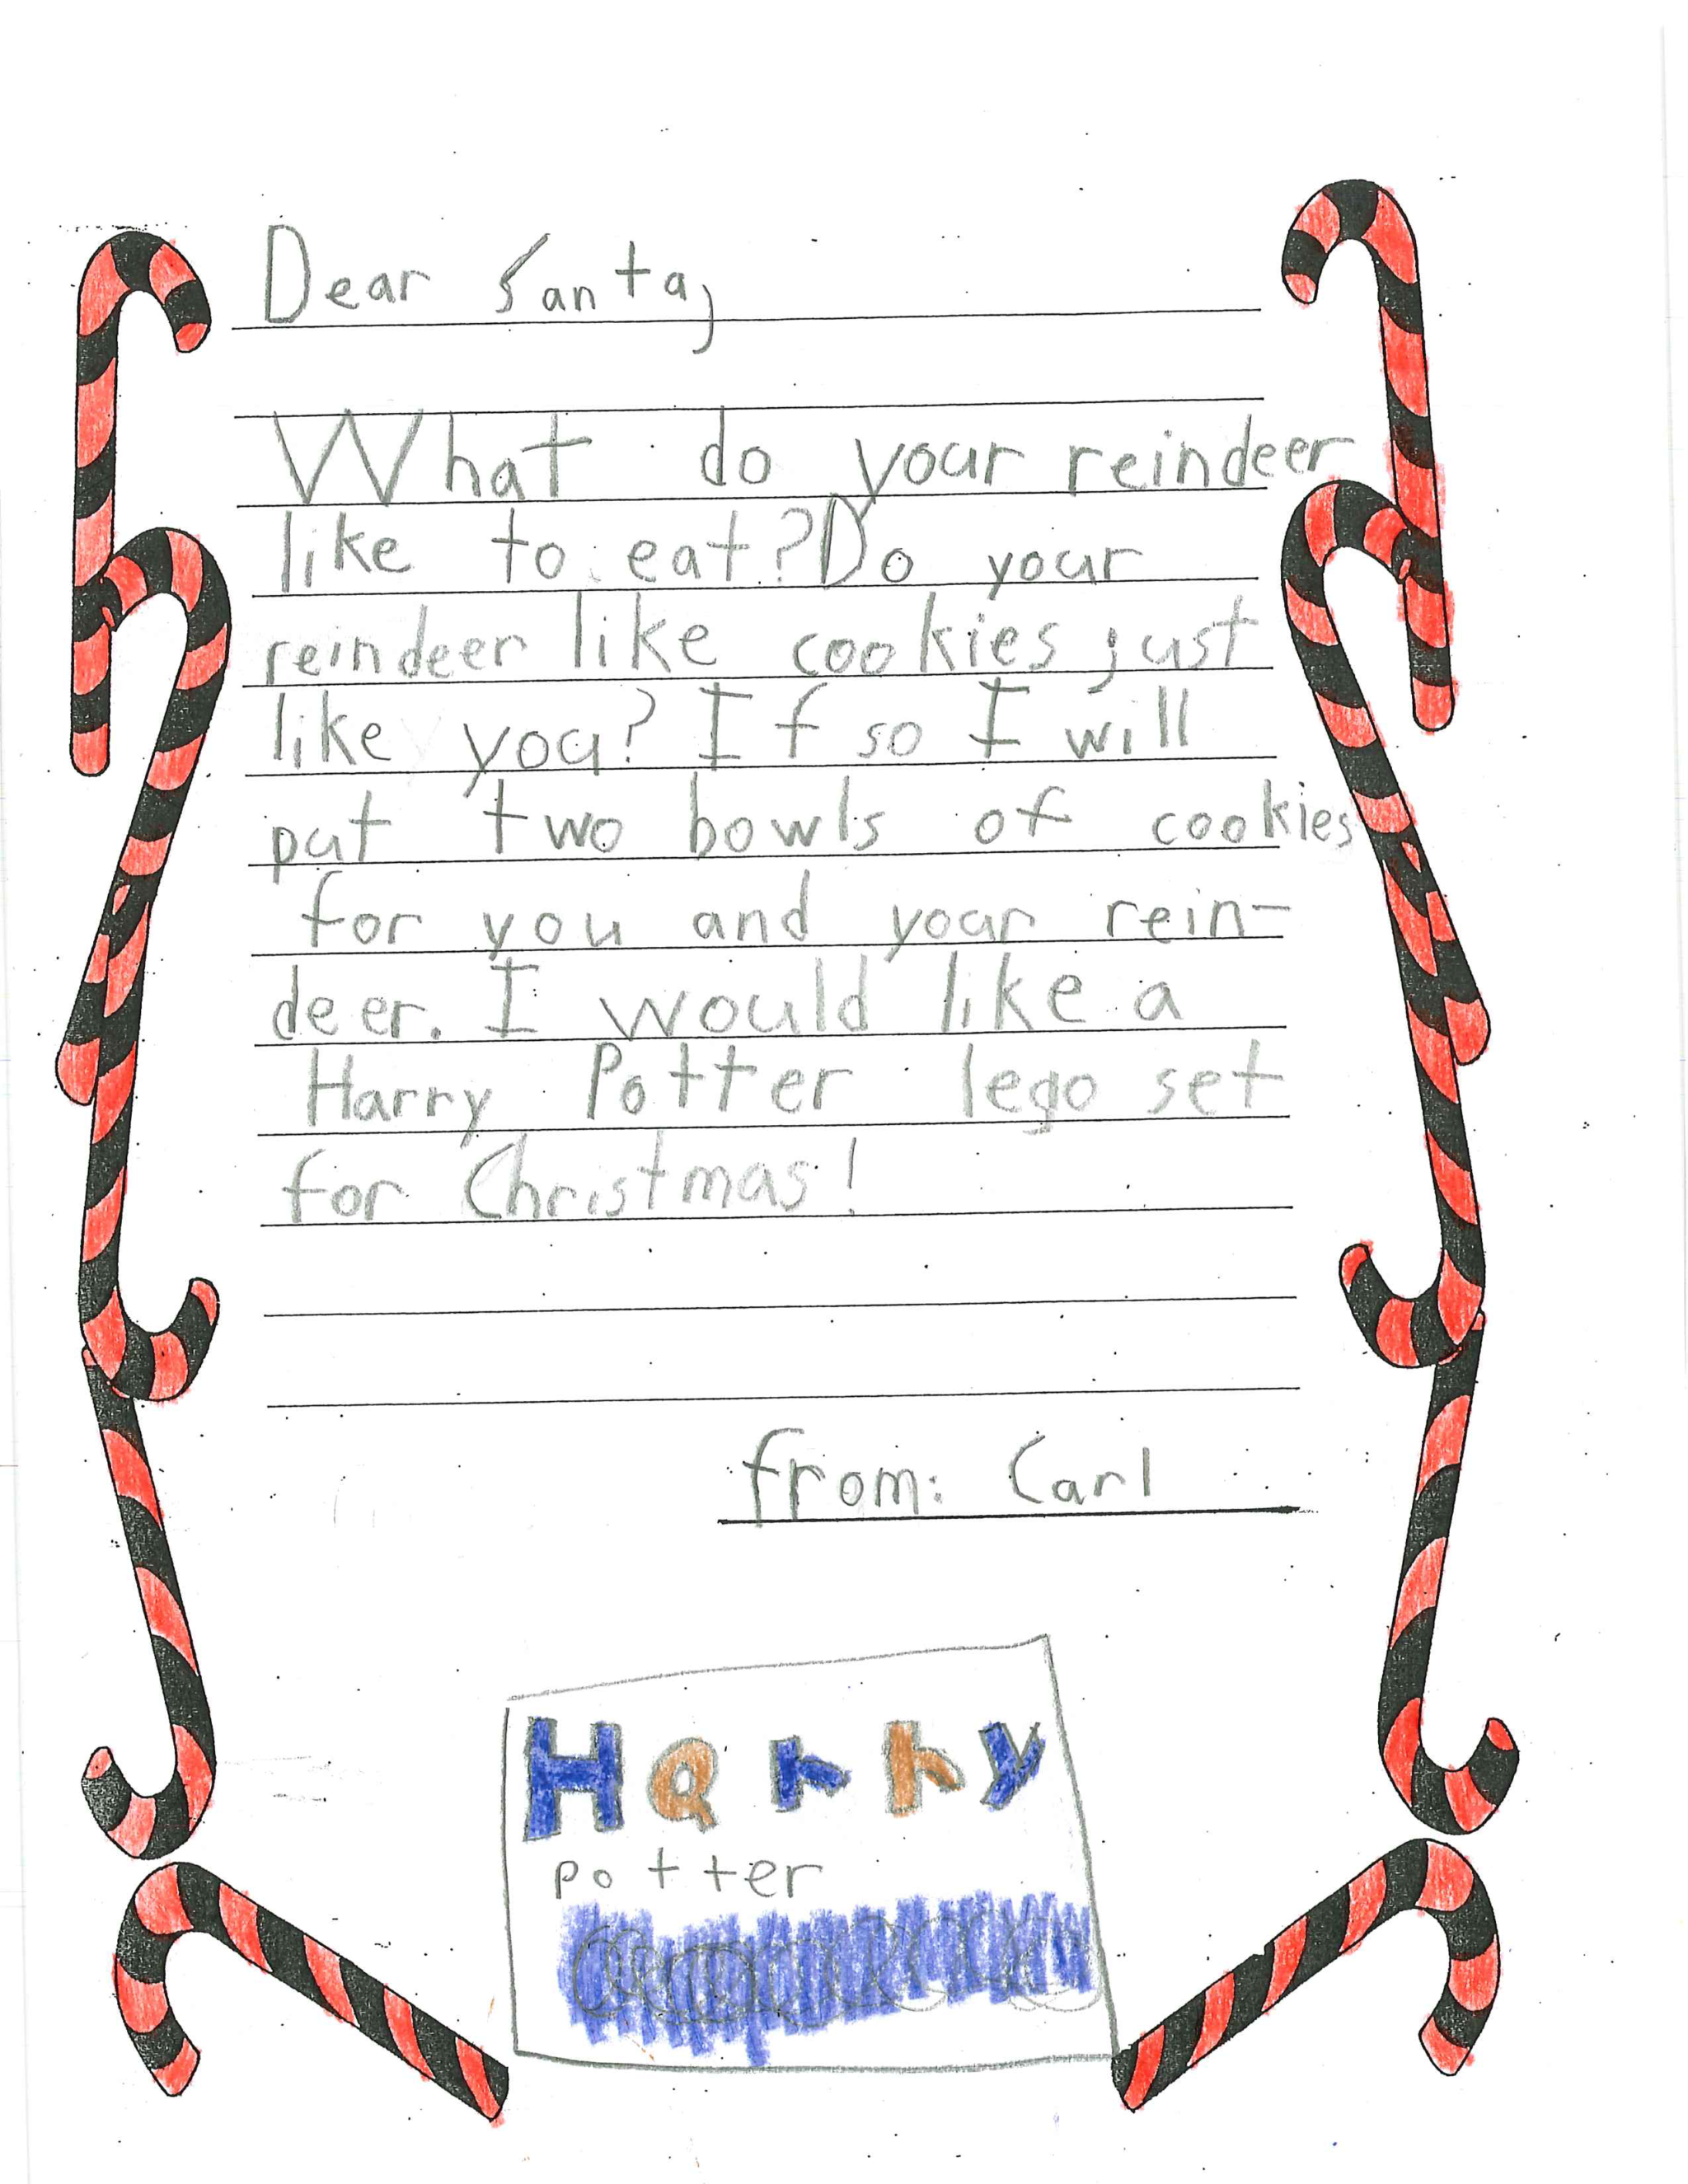 Dear Santa,
What do your reindeer
like to eat? Do your
reindeer like cookies just
like you? If so I will
put two bowls of cookies
for you and your rein-
deer. I would like a
Harry Potter lego set
for Christmas!
from: Carl
Harry
potter